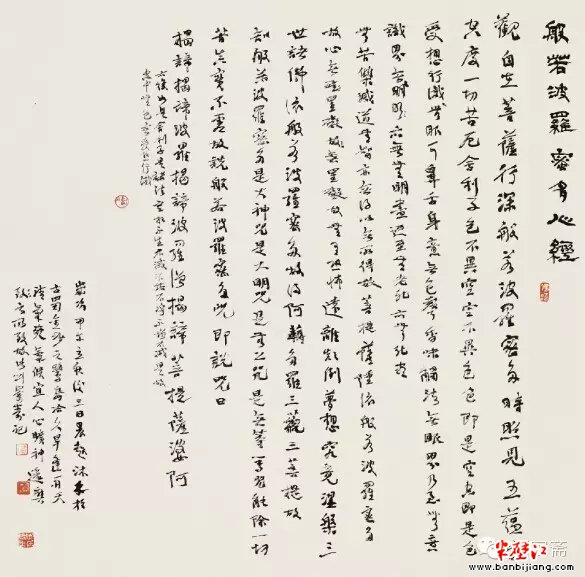 般若波羅蜜多心經
觀自在菩薩行深般若波羅蜜多時照見五蘊
皆空度一切苦厄舍利子色不異空空不異色色即是空空即是色
受想行識無眼耳鼻舌身意無色聲香味觸法無眼界乃至無意
識界無無明亦無無明盡乃至無老死亦無老死盡
無苦集滅道無智亦無得以無所得故菩提薩陲依般若波羅蜜多
故心無罣礙無罣礙故無有恐怖遠離顛倒夢想究竟涅槃三
世諸佛依般若波羅蜜多故得阿耨多羅三藐三菩提故
知般若波羅蜜多是大神咒是大明咒是無上咒是無等等咒能除一切
苦真實不虛故說般若波羅蜜多咒即說咒曰
揭諦揭諦波羅揭諦波羅僧揭諦菩提薩婆阿
是舍利子是諸法空相不生不滅不垢不淨不增不減是故
空中無色無受想行識
歲次甲午立秋後三日晨起沐手於
古蜀
候宜人心曠神
記
www.banbijiang.com